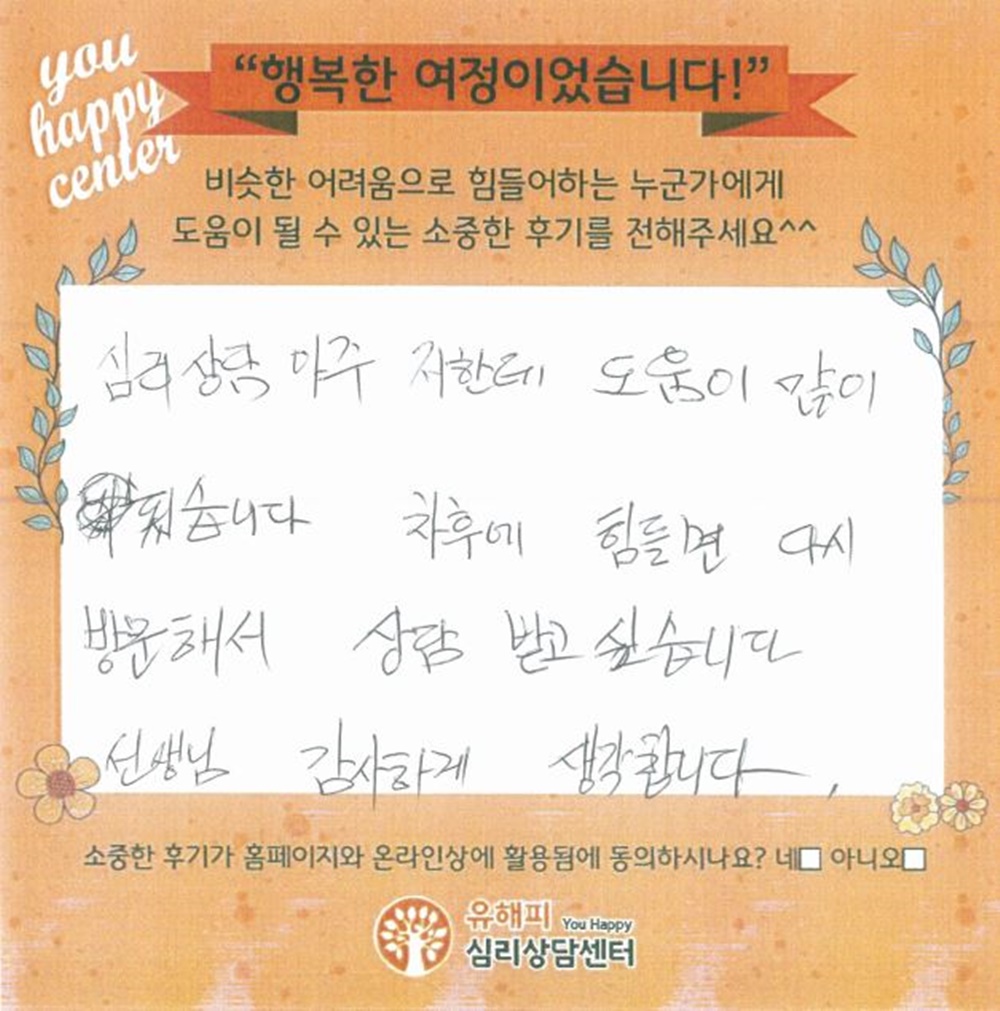 you
happy
center
“행복한 여정이었습니다!”
비슷한 어려움으로 힘들어하는 누군가에게
도움이 될 수 있는 소중한 후기를 전해주세요^^
심리상담 아주 저한테 도움이 많이
됬습니다 차후에 힘들면 다시
방문해서 상담 받고 싶습니다
선생님 감사하게 생각합니다.
소중한 후기가 홈페이지와 온라인상에 활용됨에 동의하시나요? 네□ 아니오□
유해피 You Happy
심리상담센터